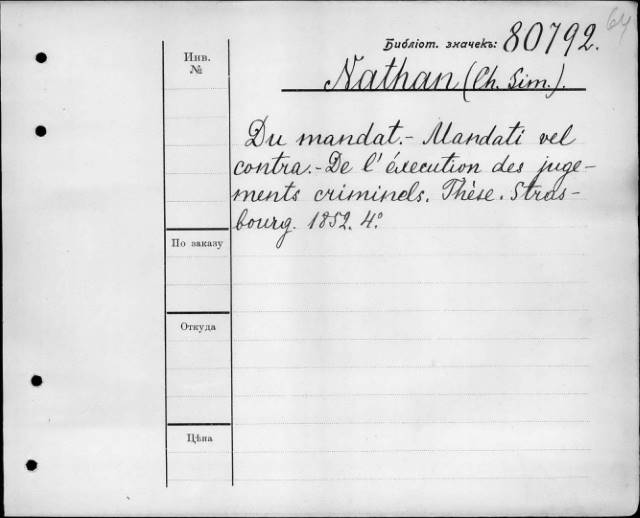 64
Библіот. значекъ: 80792.
Инв.
№
Nathan (Ch. Sim.).
Du mandat. - Mandati vel
contra. - De l'éxecution des juge-
ments criminels. Thèse. Stras-
bourg. 1852. 4°.
По заказу
Откуда
Цѣна